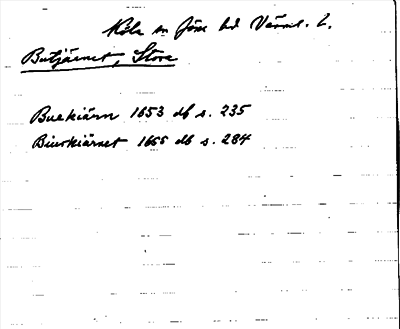 Köla sn Jösse hd Värml. l.
Butjärnet, Stora
Buekiärn 1653 db s. 235
Biurkiärnet 1655 db s. 284